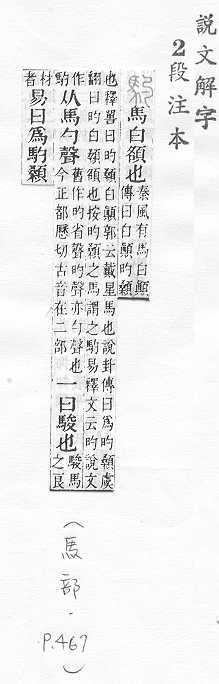 說文解字
2段注本
馰 馬白頟也 秦風有馬白顚
傳曰白顚旳顙
也釋嘼曰旳顙白顚郭云戴星馬也說卦傳曰爲旳顙虞
翻曰旳白顙頟也按旳顙之馬謂之馰易釋文云旳說文
作馰 从馬勺聲 舊作旳省聲旳聲亦勺聲也今正都歷切古音在二部 一曰駿也 駿馬之良
材者 易曰爲馰顙
(馬部.P.467)